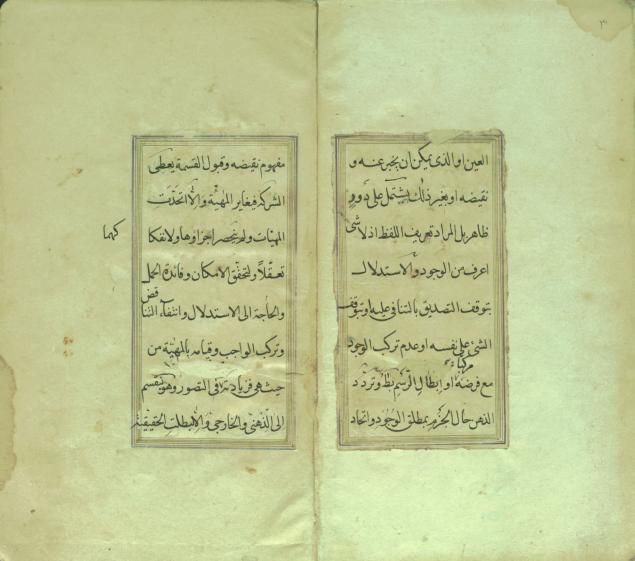 ٣
العين او الذى يمكن ان يخبر عنه و
نقيضه او بغير ذلك يشتمل على دور
ظاهر بل المراد تعريف اللفظ اذ لا شئ
اعرف من الوجود والاستدلال
بتوقف التصديق بالتنافى عليه او بتوقف
الشئ على نفسه او عدم تركب الوجود
مع فرضه مركبا او ابطال الرسم باطل وتردد
الذهن حال الجزم بمطلق الوجود واتحاد
مفهوم نقيضه وقبول القسمة يعطى
الشركة فيغاير المهية والا اتحدت
المهيات ولم ينحصر اجزاؤها ولانفكا
كهما
تعقلا ولتحقق الامكان وفائدة الحمل
والحاجة الى الاستدلال وانتفاء التناقض
وتركب الواجب وقيامه بالمهية من
حيث هى فزيادته فى التصور وهو ينقسم
الى الذهنى والخارجى والا لبطلت الحقيقية